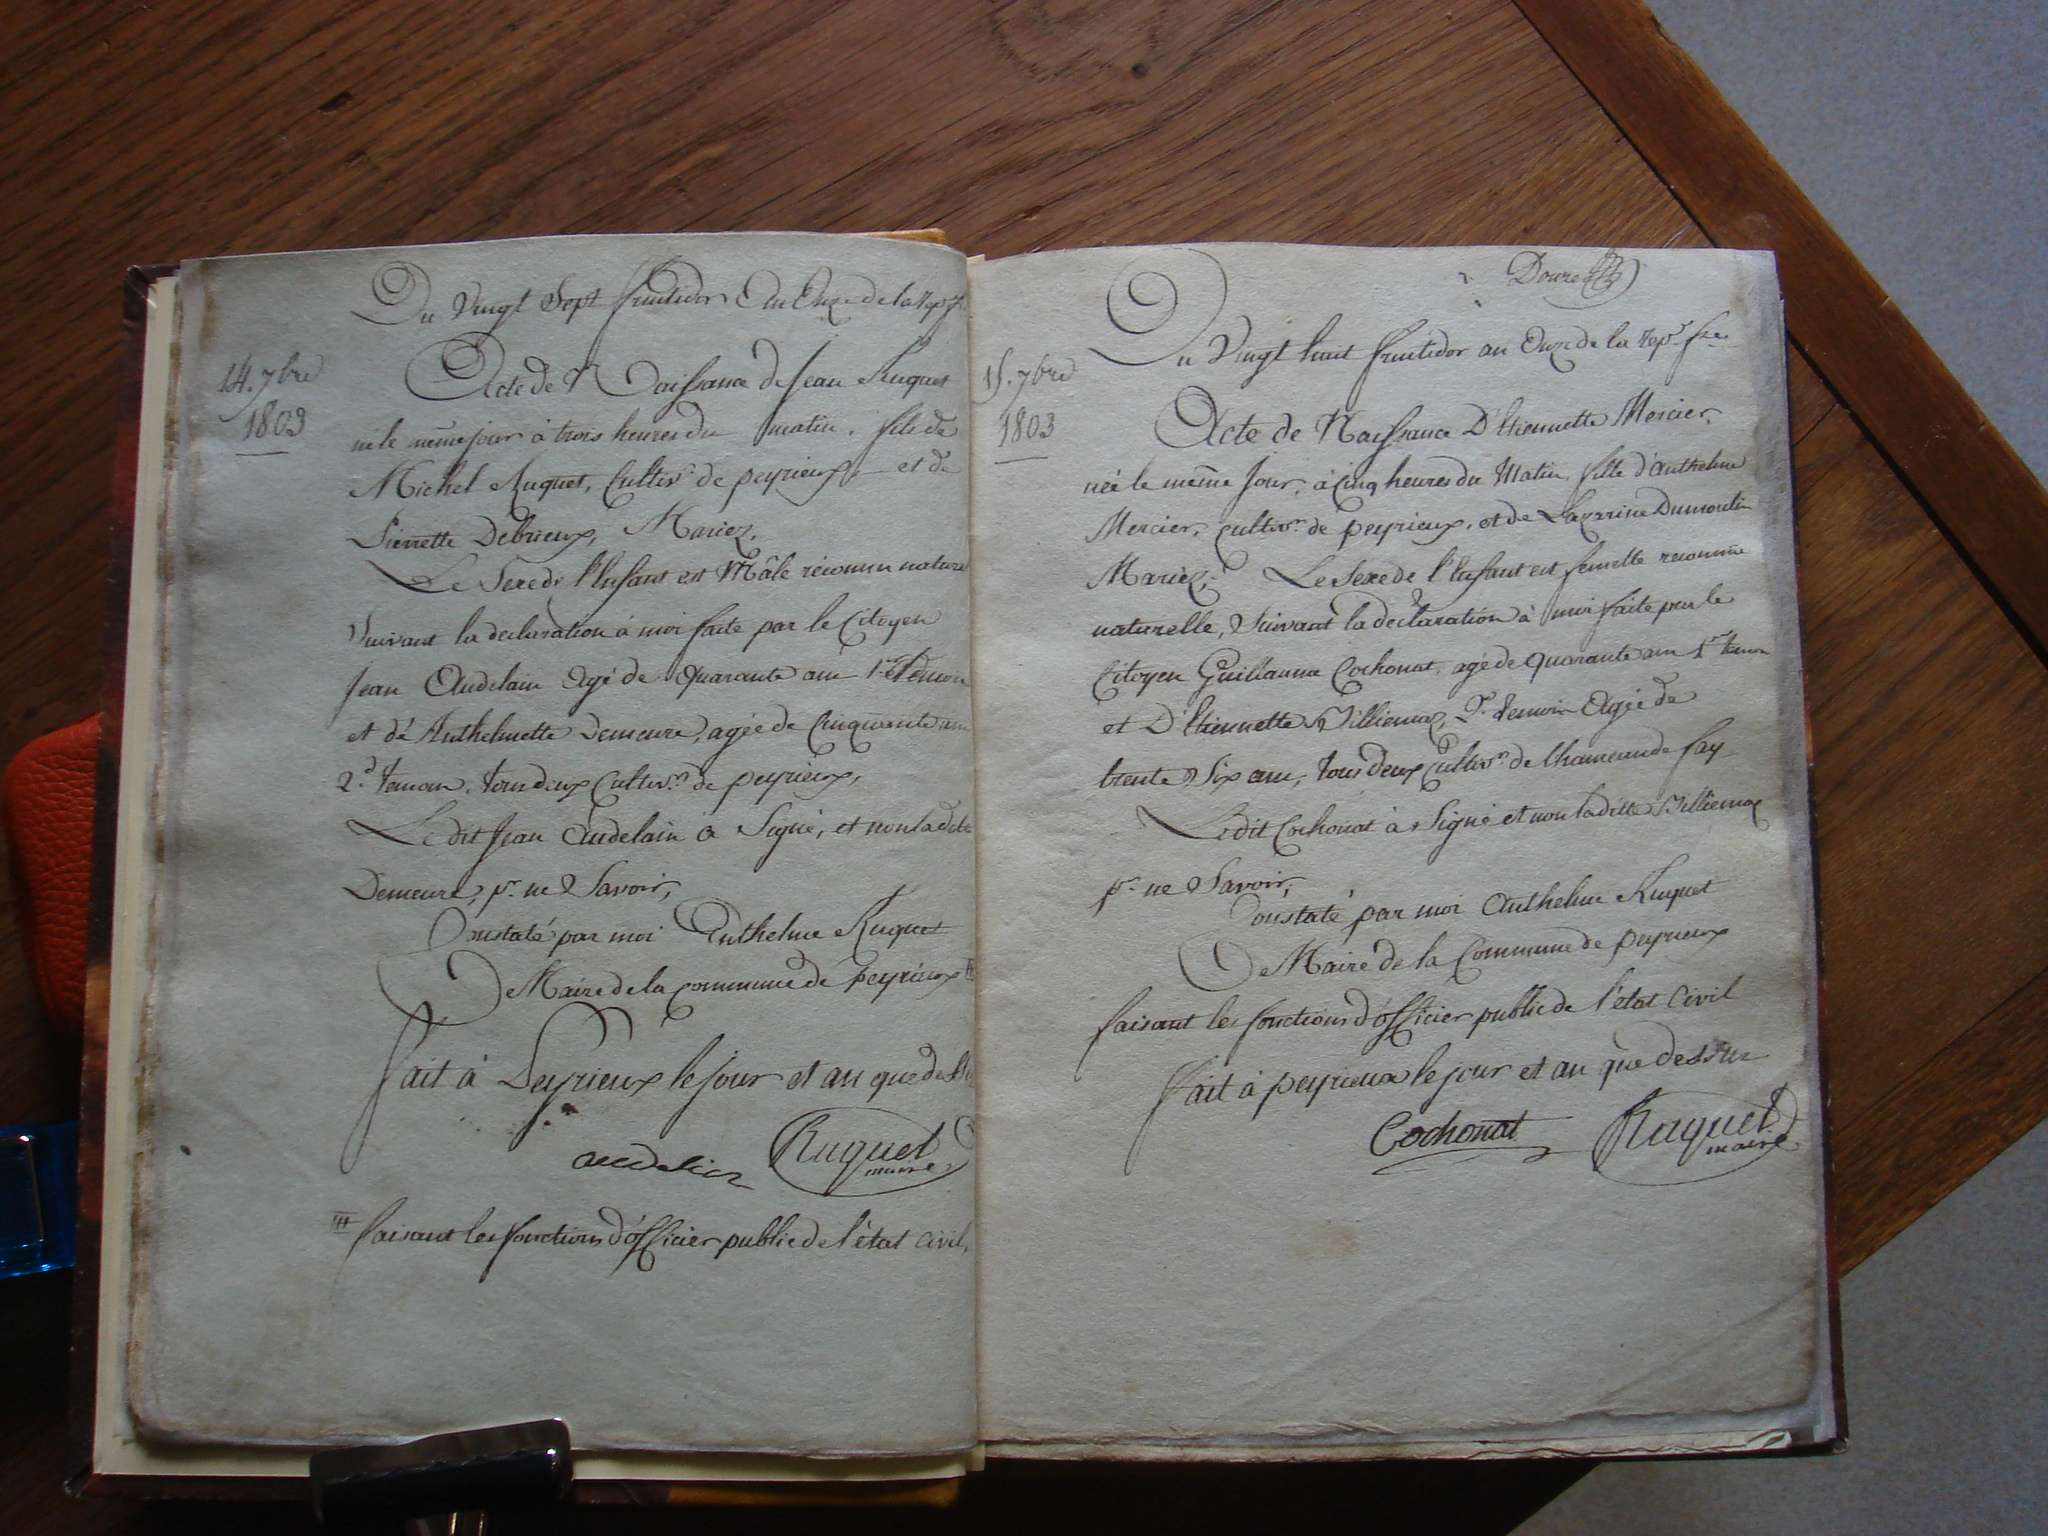 Du Vingt Sept fructidor An Onze de la rep. f.
14. 7bre
1803
Acte de Naissance de Jean Ruquet
né le même jour à trois heures du matin, fils de
Michel Ruquet, Cultivr. de peyrieux, et de
Pierrette Debrieux, Mariez,
Le Sexe de l'Enfant est Mâle réconnu naturel
Suivant la declaration à moi faite par le Citoyen
Jean Audelain Agé de Quarante ans 1er. témoin
et dé Anthelmette Demeure, agée de Cinquante ans
2d. temoin, tous deux Cultivrs. de peyrieux,
Le dit Jean Audelain a Signé, et non la dite
Demeure, pr. ne Savoir,
Constaté par moi Anthelme Ruquet
Maire de la Commune dé peyrieux #
fait à Peyrieux le jour et an que dessus
audelin Ruquet
maire
# faisant les fonctions d'officier public de l'état civil,
Douze
Du Vingt huit fructidor an Onze de la rep. fse.
15. 7bre
1803
Acte de Naissance D'Etiennette Mercier,
née le même Jour, à Cinq heures du Matin, fille d'Anthelme
Mercier, cultivr. de peyrieux, et de Lazarine Dumoulin
Mariez, Le Sexe de l'Enfant est femelle reconnue
naturelle, Suivant la déclaration à moi faite par le
Citoyen Guillaume Cochonat, agé de quarante ans 1er temoin
et D'Etiennette Villiermoz, 2d. temoin Agée de
trente Six ans, tous deux Cultivrs. de Chameaude fay
Ledit Cochonat à Signé et non laditte Villiermoz
pr. ne Savoir,
Constaté par moi Anthelme Ruquet
Maire de la Commune de peyrieux
faisant les fonctions d'officier public de l'état Civil
fait à peyrieux le jour et an que dessus
Cochonat Ruquet
maire